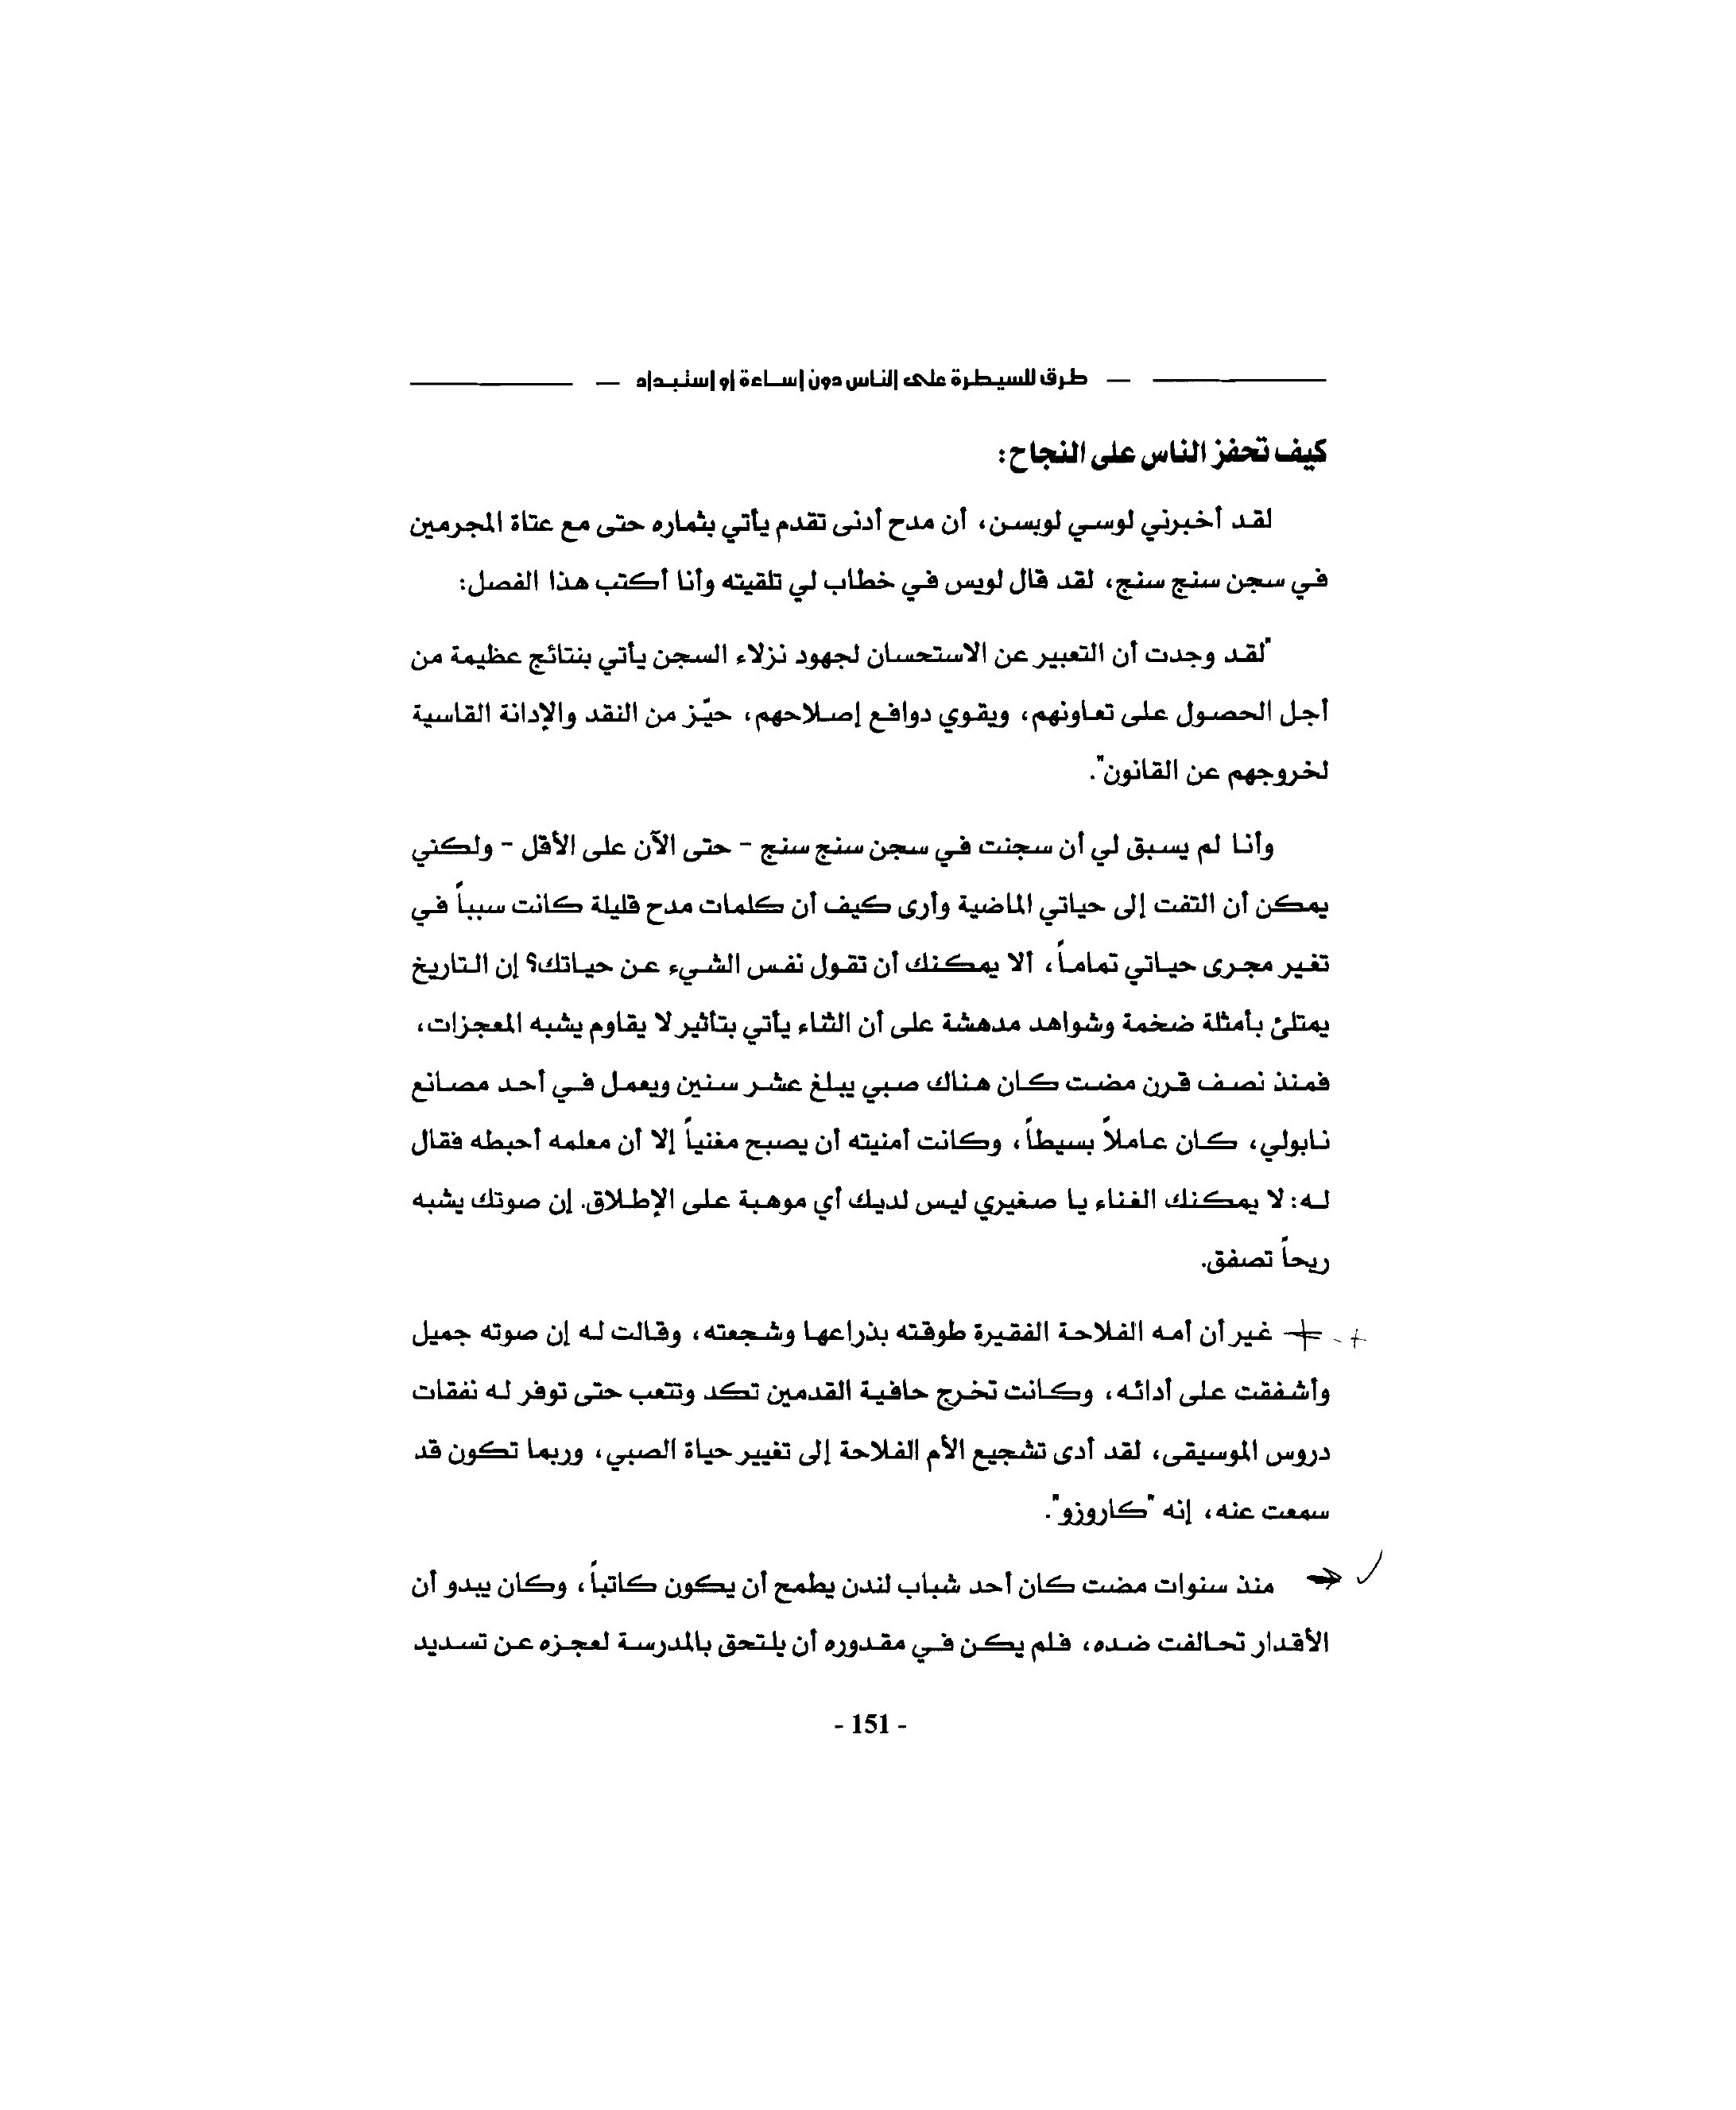 طرق للسيطرة على الناس دون إساءة أو استبداد
كيف تحفز الناس على النجاح:
لقد أخبرني لوسي لوبسن، أن مدح أدنى تقدم يأتي بثماره حتى مع عتاة المجرمين
في سجن سنج سنج، لقد قال لويس في خطاب لي تلقيته وأنا أكتب هذا الفصل:
"لقد وجدت أن التعبير عن الاستحسان لجهود نزلاء السجن يأتي بنتائج عظيمة من
أجل الحصول على تعاونهم، ويقوي دوافع إصلاحهم، حيّز من النقد والإدانة القاسية
لخروجهم عن القانون".
وأنا لم يسبق لي أن سجنت في سجن سنج سنج - حتى الآن على الأقل - ولكني
يمكن أن التفت إلى حياتي الماضية وأرى كيف أن كلمات مدح قليلة كانت سبباً في
تغير مجرى حياتي تماماً، ألا يمكنك أن تقول نفس الشيء عن حياتك؟ إن التاريخ
يمتلئ بأمثلة ضخمة وشواهد مدهشة على أن الثناء يأتي بتأثير لا يقاوم يشبه المعجزات،
فمنذ نصف قرن مضت كان هناك صبي يبلغ عشر سنين ويعمل في أحد مصانع
نابولي، كان عاملاً بسيطاً، وكانت أمنيته أن يصبح مغنياً إلا أن معلمه أحبطه فقال
له: لا يمكنك الغناء يا صغيري ليس لديك أي موهبة على الإطلاق. إن صوتك يشبه
ريحاً تصفق.
غير أن أمه الفلاحة الفقيرة طوقته بذراعها وشجعته، وقالت له إن صوته جميل
وأشفقت على أدائه، وكانت تخرج حافية القدمين تكد وتتعب حتى توفر له نفقات
دروس الموسيقى، لقد أدى تشجيع الأم الفلاحة إلى تغيير حياة الصبي، وربما تكون قد
سمعت عنه، إنه "كاروزو".
منذ سنوات مضت كان أحد شباب لندن يطمح أن يكون كاتباً، وكان يبدو أن
الأقدار تحالفت ضده، فلم يكن في مقدوره أن يلتحق بالمدرسة لعجزه عن تسديد
- 151 -